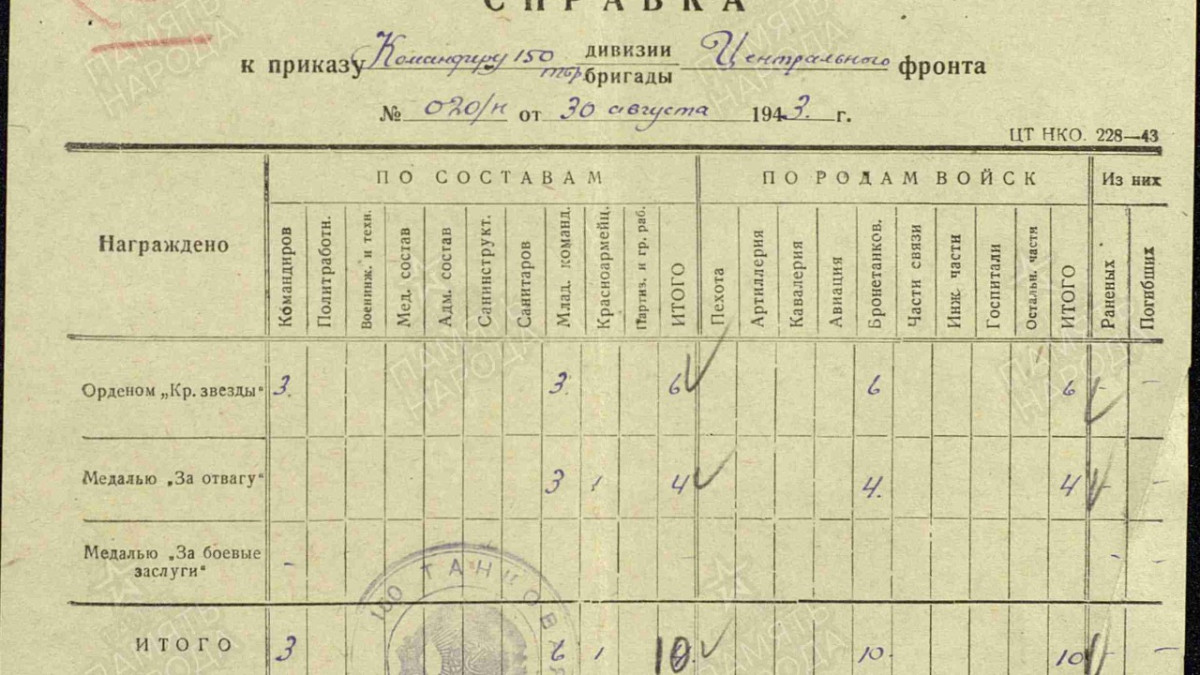 СПРАВКА
к приказу Командиру 150 тбр. дивизии
бригады Центрального фронта
№ 020/н от 30 августа 1943. г.
ЦТ НКО. 228—43
Награждено ПО СОСТАВАМ ПО РОДАМ ВОЙСК Из них
Командиров Политработн. Воениинж. и техн. Мед. состав Адм. состав Санинструкт. Санитаров Млад. команд. Красноармейц. Партиз. и гр. раб. ИТОГО Пехота Артиллерия Кавалерия Авиация Бронетанков. Части связи Инж. части Госпитали Остальн. части ИТОГО Раненых Погибших
Орденом „Кр. звезды“ 3. 3. 6 6 6 - -
Медалью „За отвагу“ 3 1 4 4. 4 - -
Медалью „За боевые
заслуги“ - - -
ИТОГО 3 6 1 10 10. 10 - -
ТАНКОВ
ПАМЯТЬ
НАРОДА